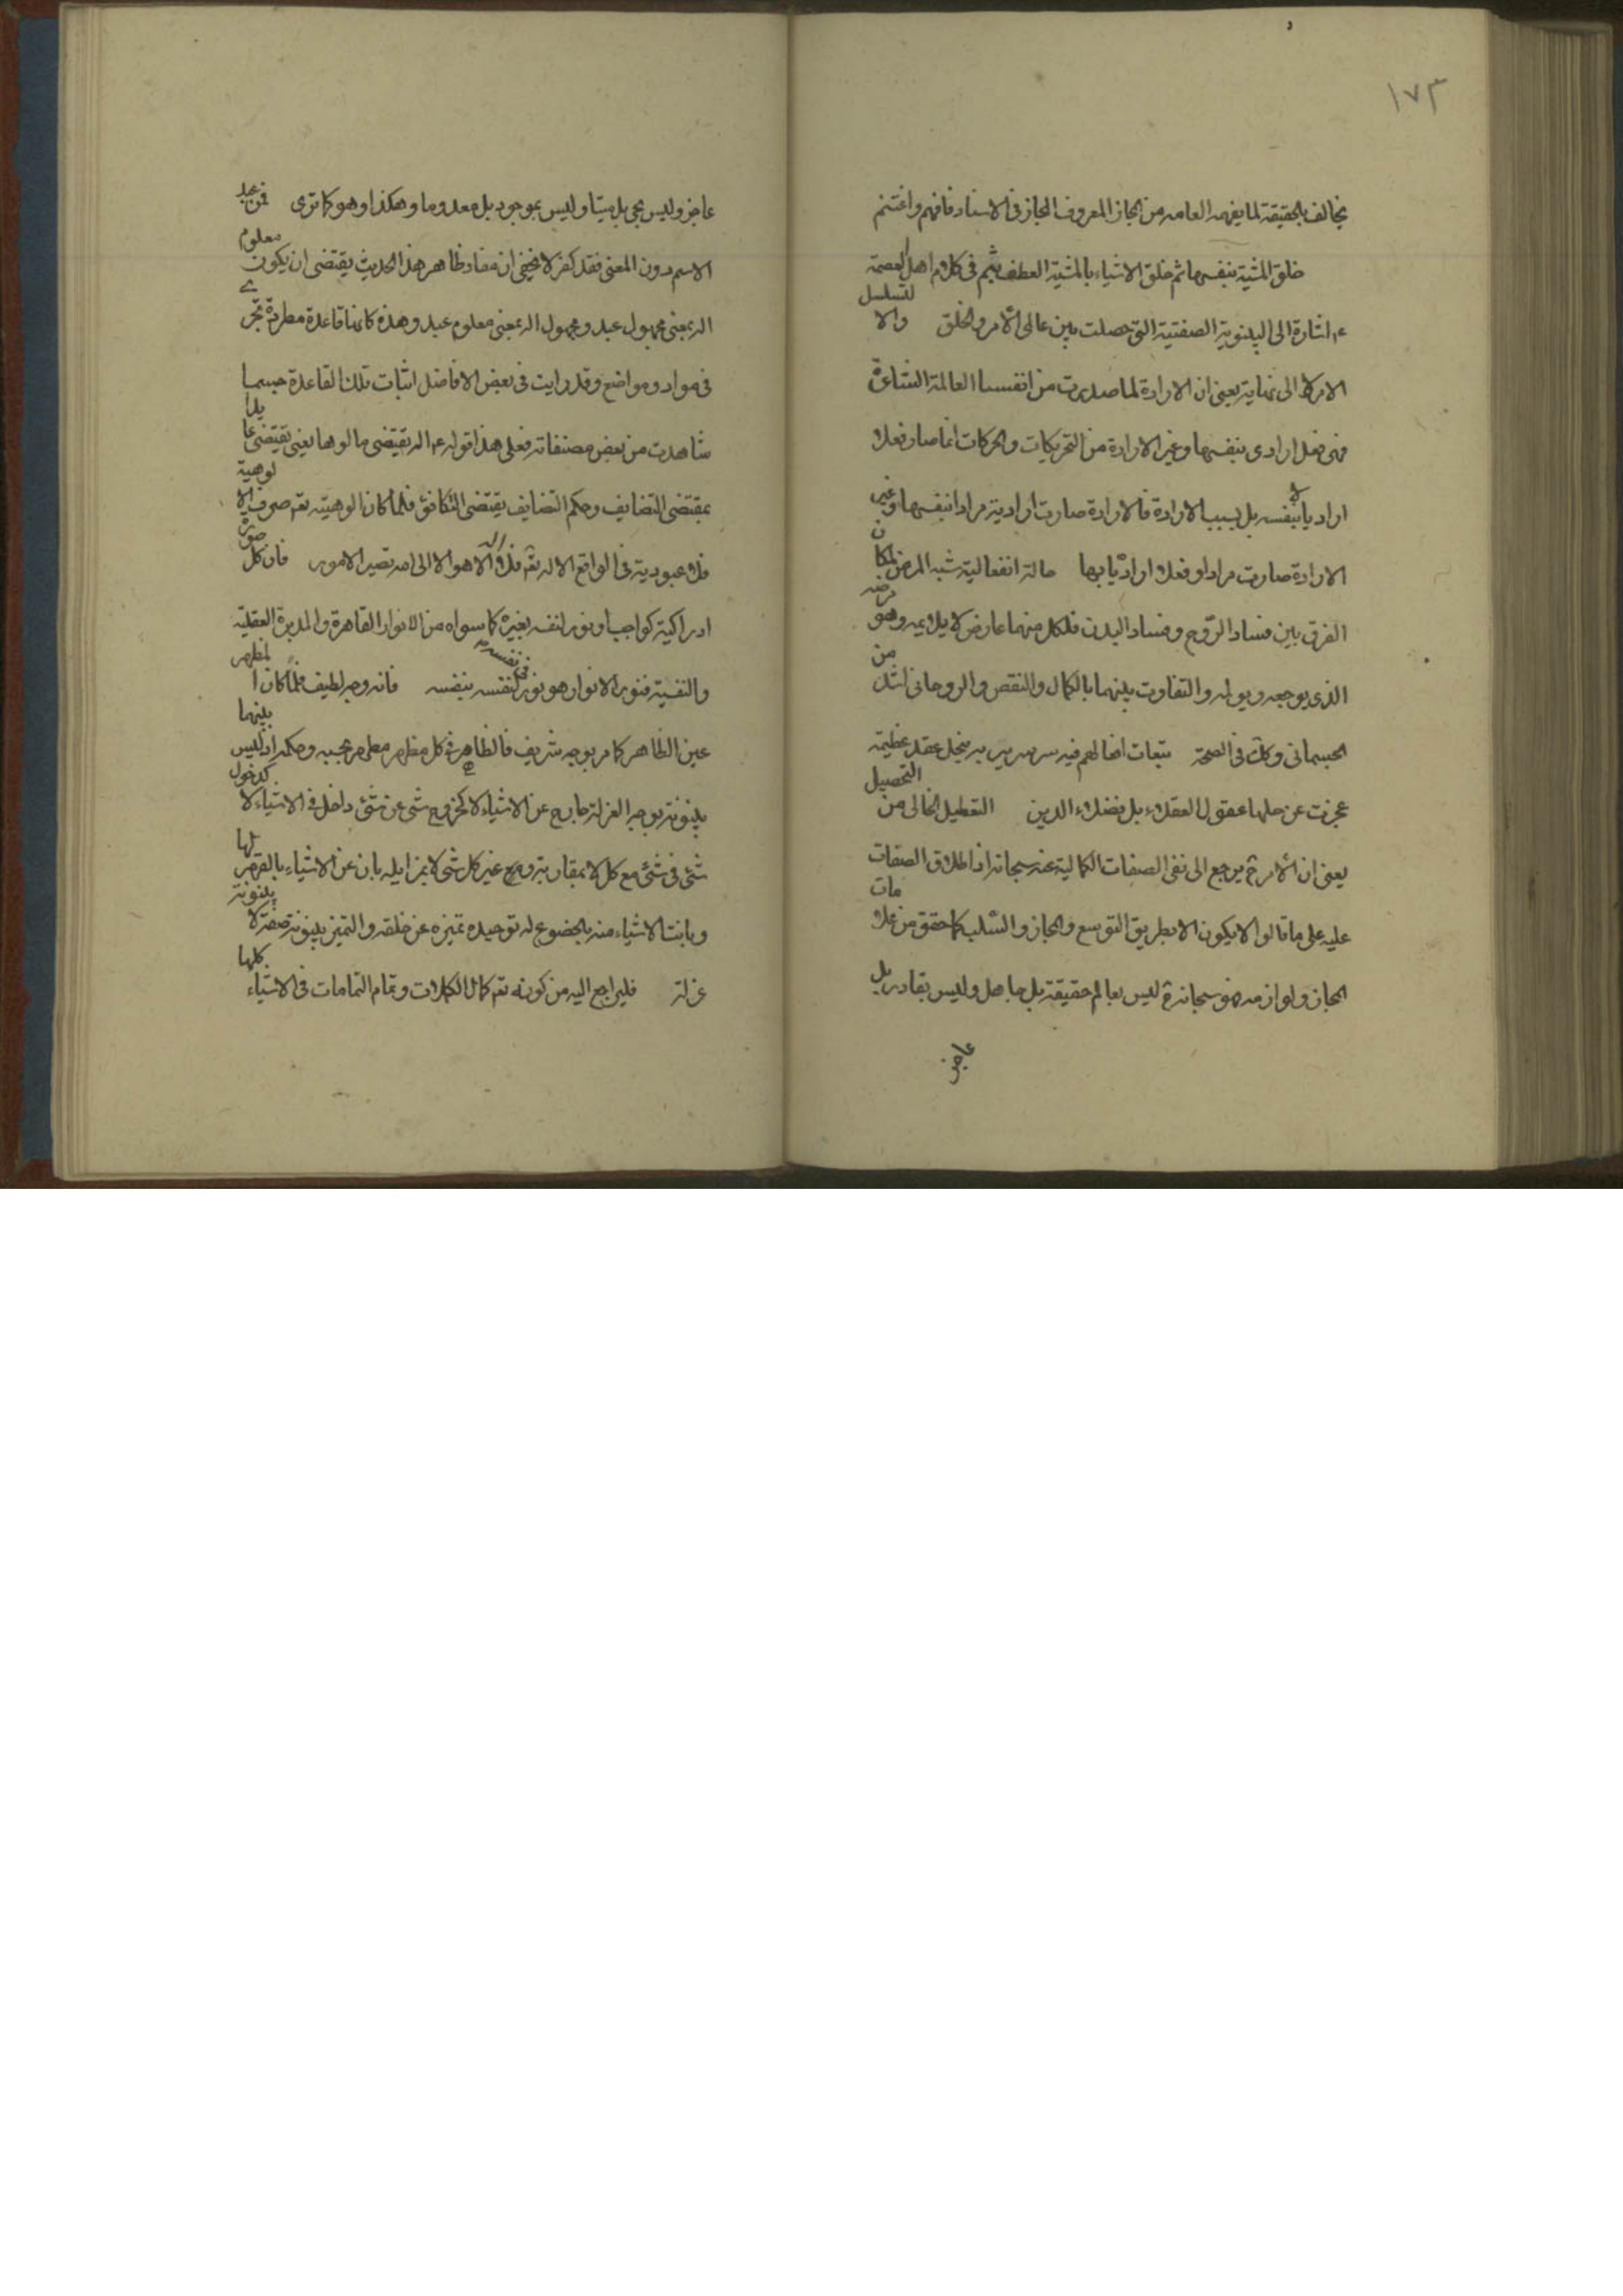 ١٧٣
يخالف بالحقيقة لما يفهمه العامه من المجاز المعروف المجاز فى الاسناد فافهم واغتنم
خلق المشية بنفسها ثم خلق الاشياء بالمشية العطف بثم فى كلام اهل العصمة
ع اشارة الى البينونة الصفتية التى حصلت بين عالمى الأمر والخلق والا لتسلسل
الامر لا الى نهاية يعنى ان الارادة لما صدرت من انفسنا العالمة الشاعرة
فهى فعل ارادى بنفسها وغير الارادة من التحريكات والحركات انما صار فعلا
اراديا لا بنفسه بل بسبب الارادة فالارادة صارت ارادية مرادا بنفسها وغير
الارادة صارت مرادا وفعلا اراديا بها حالة انفعالية شبه المرض لمكان
الفرق بين فساد الروح وفساد البدن فلكل منهما عارض لا يلايمه وهو مرضه
الذى يوجعه ويولمه والتفاوت بينهما بالكمال والنقص والروحانى اشد من
الجسمانى وكك فى الصحة تبعات افعالهم فيه سر سرير به ينحل عقد عظيمة
عجزت عن حلها عقول العقلاء بل فضلاء الدين التعطيل الخالى من التحصيل
يعنى ان الأمر ح يرجع الى نفى الصفات الكمالية عنه سبحانه اذ اطلاق الصفات
عليه على ما قالوا لا يكون الا بطريق التوسع والمجاز والسلب كما حقق من علامات
المجاز ولوازمه فهو سبحانه ح ليس بعالم حقيقة بل جاهل وليس بقادر بل
عاجز
عاجز وليس بحى بل ميتا وليس بموجود بل معدوما وهكذا وهو كما ترى فمن عبد
الاسم دون المعنى فقد كفر لا يخفى ان مفاد ظاهر هذا الحديث يقتضى ان يكون معلوم
اله بمعنى مجهول عبد ومجهول اله بمعنى معلوم عبد وهذه كانها قاعدة مطردة تجرى
فى مواد ومواضع وقد رايت فى بعض الافاضل اثبات تلك القاعدة حسبما
شاهدت من بعض مصنفاته فعلى هذا قوله ع اله يقتضى مالوها يعنى يقتضى عابدا
بمقتضى التضايف وحكم التضايف يقتضى التكافؤ فلما كان الوهيته تعالى صرف الالوهية
فلا عبودية فى الواقع الا له تعالى فلا اله الا هو الا الى الله تصير الامور فان كل صورة
ادراكية كواجب او نور لنفسه بغيره كما سواه من الانوار القاهرة والمدبرة العقلية
والنفسية فنور الانوار هو نور فى نفسه لنفسه بنفسه فانه وجه لطيف فلما كان المظهر
عين الظاهر كما مر بوجه شريف فالظاهر فى كل مظهر مظهر بحسبه وحكمه اذ ليس بينهما
بينونة بوجه العزلة خارج عن الاشياء لا كخروج شى عن شئ داخل فى الاشياء لا كدخول
شئ فى شئ مع كل لا بمقارنة وغير كل شى لا بمزايلة بان عن الاشياء بالقهر لها
وبانت الاشياء منه بالخضوع له توحيده تميزه عن خلقه والتميز بينونة صفة لا بينونة
عزلة فليراجع اليه من كونه تعالى كمال الكمالات وتمام التمامات فى الاشياء كلها